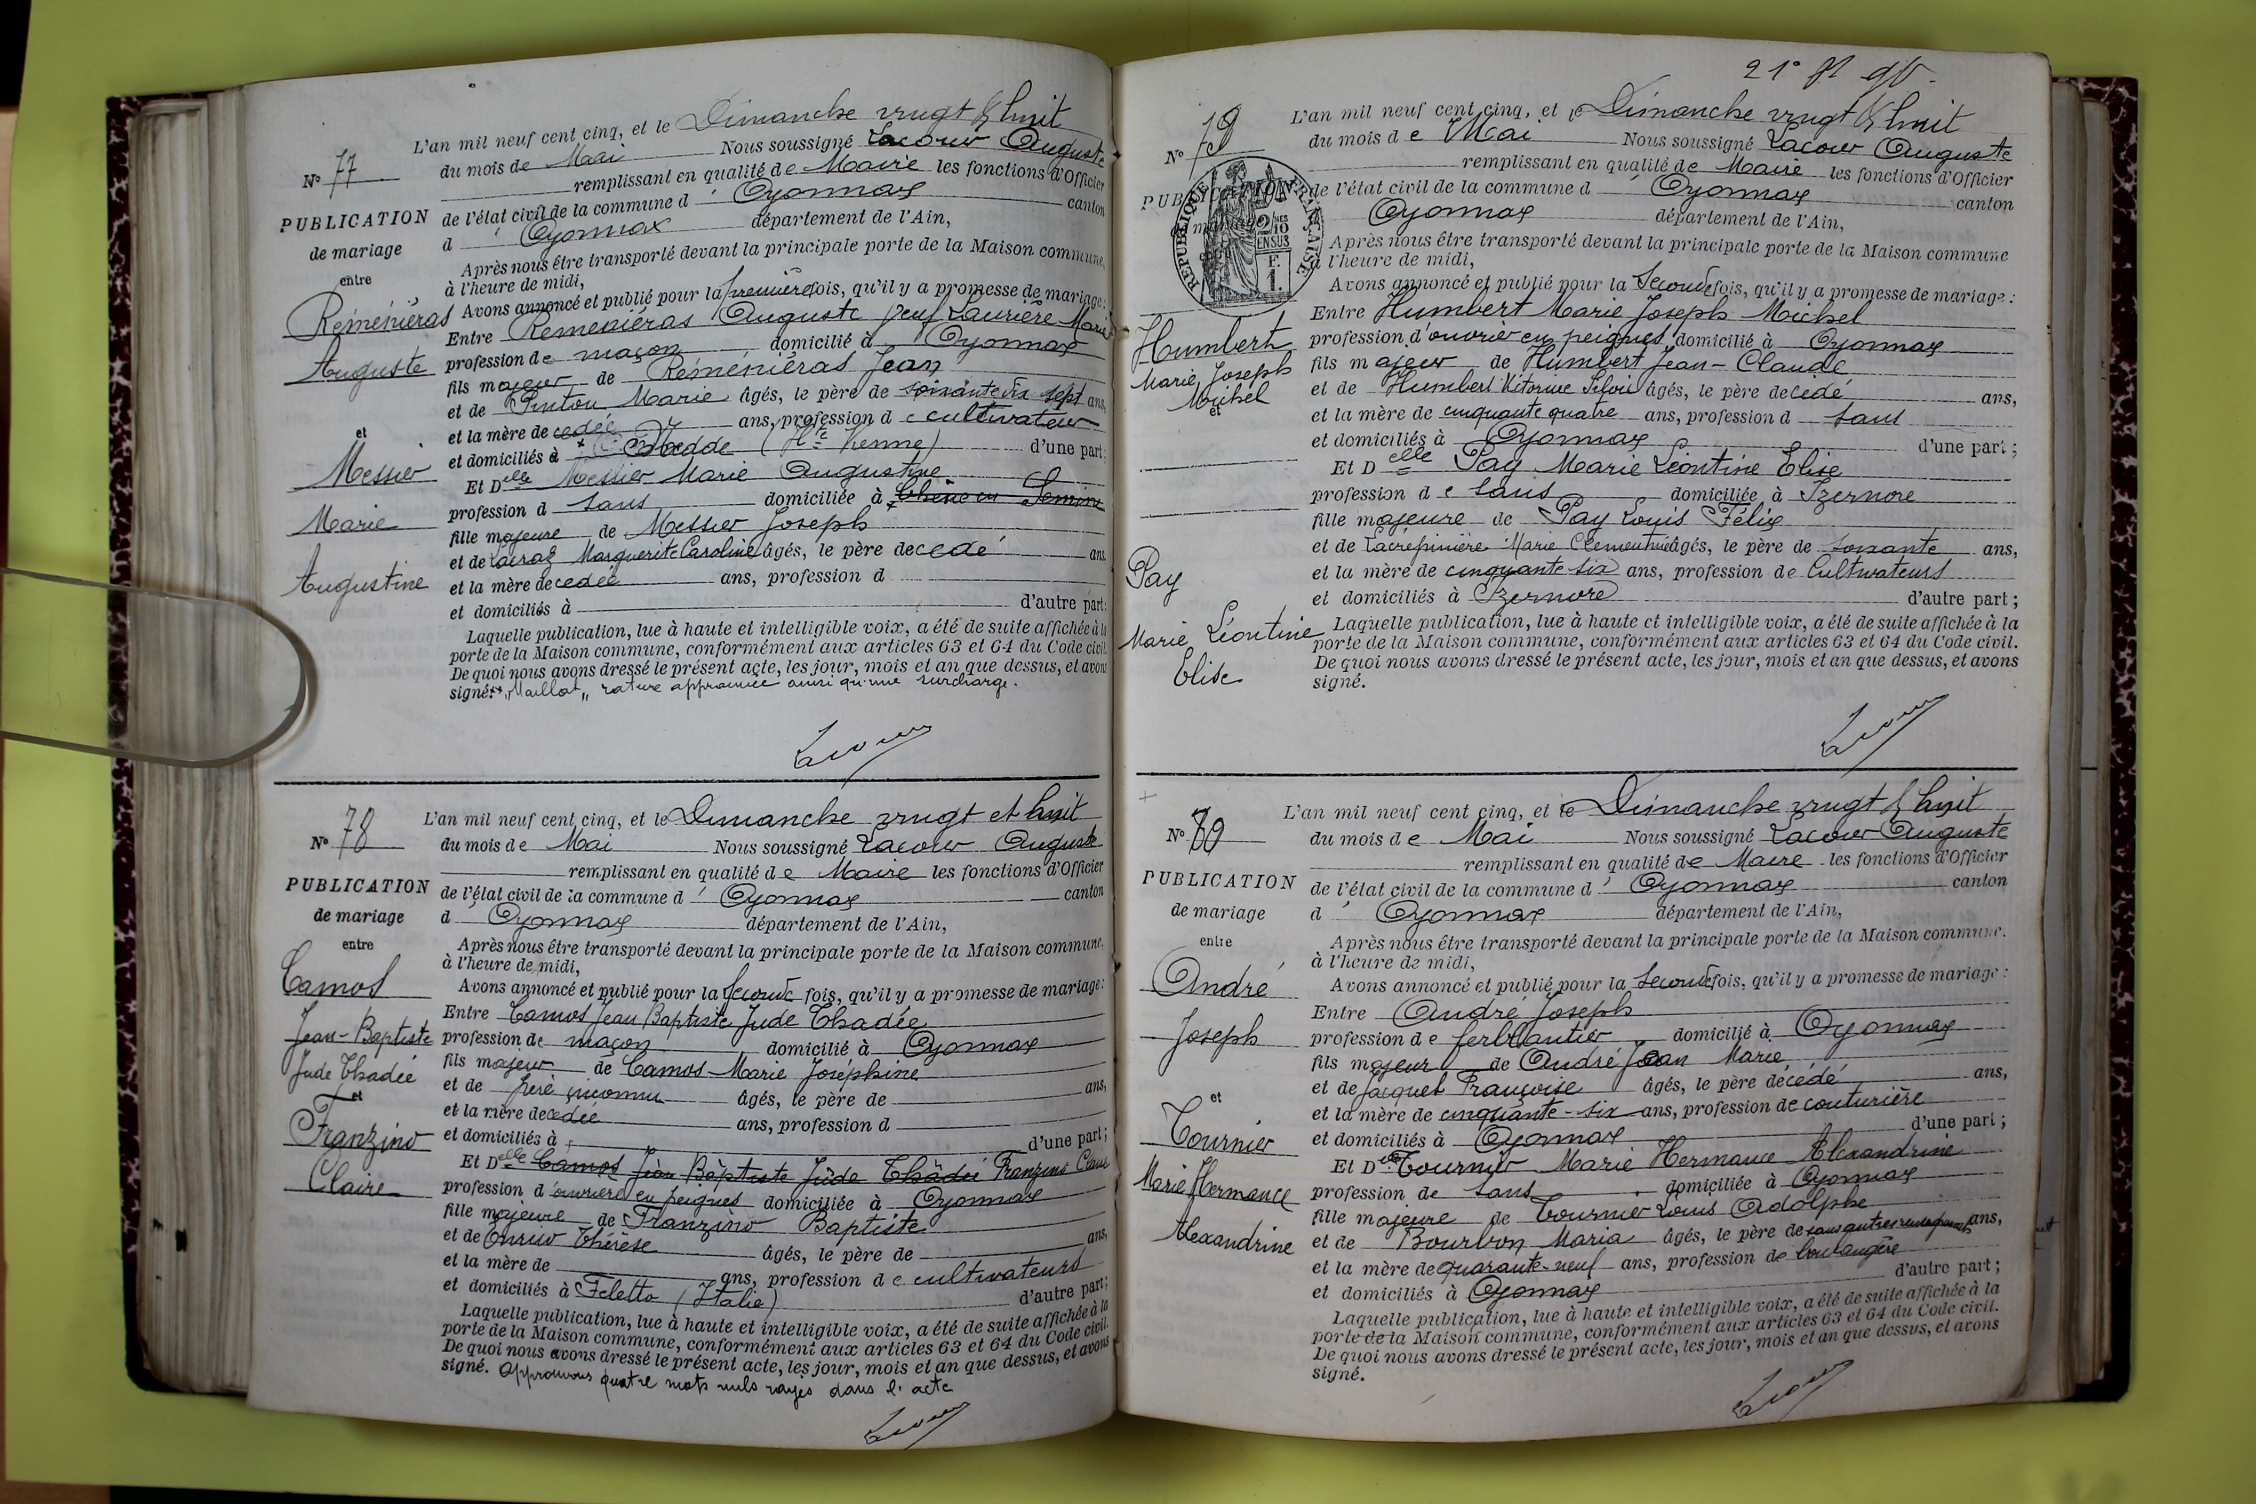 N° 77
PUBLICATION
de mariage
entre
Reménieras
Auguste
et
Messier
Marie
Augustine
L'an mil neuf cent cinq, et le Dimanche vingt & huit
du mois de Mai Nous soussigné Lacour Auguste
remplissant en qualité de Maire les fonctions d'Officier
de l'état civil de la commune d' Oyonnax canton
d' Oyonnax département de l'Ain,
Après nous être transporté devant la principale porte de la Maison commune,
à l'heure de midi,
Avons annoncé et publié pour la première fois, qu'il y a promesse de mariage:
Entre Reménieras Auguste veuf Laurière Marie
profession de maçon domicilié à Oyonnax
fils majeur de Réménièras Jean
et de Pintou Marie âgés, le père de soixante dix sept ans,
et la mère décédée ans, profession de cultivateur
et domiciliés à Nedde (Hte Vienne) d'une part;
Et Delle Messier Marie Augustine
profession d sans domiciliée à Chêne en Semine
fille majeure de Messier Joseph
et de Lairaz Marguerite Caroline âgés, le père décédé ans
et la mère décédée ans, profession d
et domiciliés à d'autre part:
Laquelle publication, lue à haute et intelligible voix, a été de suite affichée à la
porte de la Maison commune, conformément aux articles 63 et 64 du Code civil.
De quoi nous avons dressé le présent acte, les jour, mois et an que dessus, et avons
signé. "Maillat" rature approuvée ainsi qu'une surcharge.
Lacour
N° 78
PUBLICATION
de mariage
entre
Camos
Jean-Baptiste
Jude Thadée
et
Franzino
Claire
L'an mil neuf cent cinq, et le Dimanche vingt et huit
du mois de Mai Nous soussigné Lacour Auguste
remplissant en qualité de Maire les fonctions d'Officier
de l'état civil de la commune d' Oyonnax canton
d' Oyonnax département de l'Ain,
Après nous être transporté devant la principale porte de la Maison commune,
à l'heure de midi,
Avons annoncé et publié pour la seconde fois, qu'il y a promesse de mariage:
Entre Camos Jean Baptiste Jude Thadée
profession de maçon domicilié à Oyonnax
fils majeur de Camos Marie Joséphine
et de père inconnu âgés, le père de ans,
et la mère décédée ans, profession d
et domiciliés à d'une part;
Et Delle Camos Jean Baptiste Jude Thadée Franzino Claire
profession d'ouvrière en peignes domiciliée à Oyonnax
fille majeure de Franzino Baptiste
et de Enrico Thérèse âgés, le père de ans,
et la mère de ans, profession de cultivateurs
et domiciliés à Feletto (Italie) d'autre part;
Laquelle publication, lue à haute et intelligible voix, a été de suite affichée à la
porte de la Maison commune, conformément aux articles 63 et 64 du Code civil.
De quoi nous avons dressé le présent acte, les jour, mois et an que dessus, et avons
signé. Approuvons quatre mots nuls rayés dans l'acte
Lacour
N° 79
PUBLICATION
de mariage
RÉPUBLIQUE FRANÇAISE
2/10
EN SUS
F.
1.
Humbert
Marie Joseph
Michel
et
Pay
Marie Léontine
Elise
L'an mil neuf cent cinq, et le Dimanche vingt & huit
du mois de Mai Nous soussigné Lacour Auguste
remplissant en qualité de Maire les fonctions d'Officier
de l'état civil de la commune d' Oyonnax canton
Oyonnax département de l'Ain,
Après nous être transporté devant la principale porte de la Maison commune
à l'heure de midi,
Avons annoncé et publié pour la seconde fois, qu'il y a promesse de mariage:
Entre Humbert Marie Joseph Michel
profession d'ouvrier en peignes domicilié à Oyonnax
fils majeur de Humbert Jean-Claude
et de Humbert Victorine âgés, le père décédé ans,
et la mère de cinquante quatre ans, profession d sans
et domiciliés à Oyonnax d'une part;
Et Delle Pay Marie Léontine Elise
profession de sans domiciliée à Izernore
fille majeure de Pay Louis Félix
et de Lacrépinière Marie Clémentine âgés, le père de soixante ans,
et la mère de cinquante-six ans, profession de Cultivateurs
et domiciliés à Izernore d'autre part;
Laquelle publication, lue à haute et intelligible voix, a été de suite affichée à la
porte de la Maison commune, conformément aux articles 63 et 64 du Code civil.
De quoi nous avons dressé le présent acte, les jour, mois et an que dessus, et avons
signé.
Lacour
N° 80
PUBLICATION
de mariage
entre
André
Joseph
et
Tournier
Marie Hermance
Alexandrine
L'an mil neuf cent cinq, et le Dimanche vingt & huit
du mois de Mai Nous soussigné Lacour Auguste
remplissant en qualité de Maire les fonctions d'Officier
de l'état civil de la commune d' Oyonnax canton
d' Oyonnax département de l'Ain,
Après nous être transporté devant la principale porte de la Maison commune.
à l'heure de midi,
Avons annoncé et publié pour la seconde fois, qu'il y a promesse de mariage:
Entre André Joseph
profession de ferblantier domicilié à Oyonnax
fils majeur de André Jean Marie
et de Jacquet Françoise âgés, le père décédé ans,
et la mère de cinquante-six ans, profession de couturière
et domiciliés à Oyonnax d'une part;
Et Delle Tournier Marie Hermance Alexandrine
profession de sans domiciliée à Oyonnax
fille majeure de Tournier Louis Adolphe
et de Bourbon Maria âgés, le père de sans autres renseignements ans,
et la mère de quarante-neuf ans, profession de boulangère
et domiciliés à Oyonnax d'autre part;
Laquelle publication, lue à haute et intelligible voix, a été de suite affichée à la
porte de la Maison commune, conformément aux articles 63 et 64 du Code civil.
De quoi nous avons dressé le présent acte, les jour, mois et an que dessus, et avons
signé.
Lacour